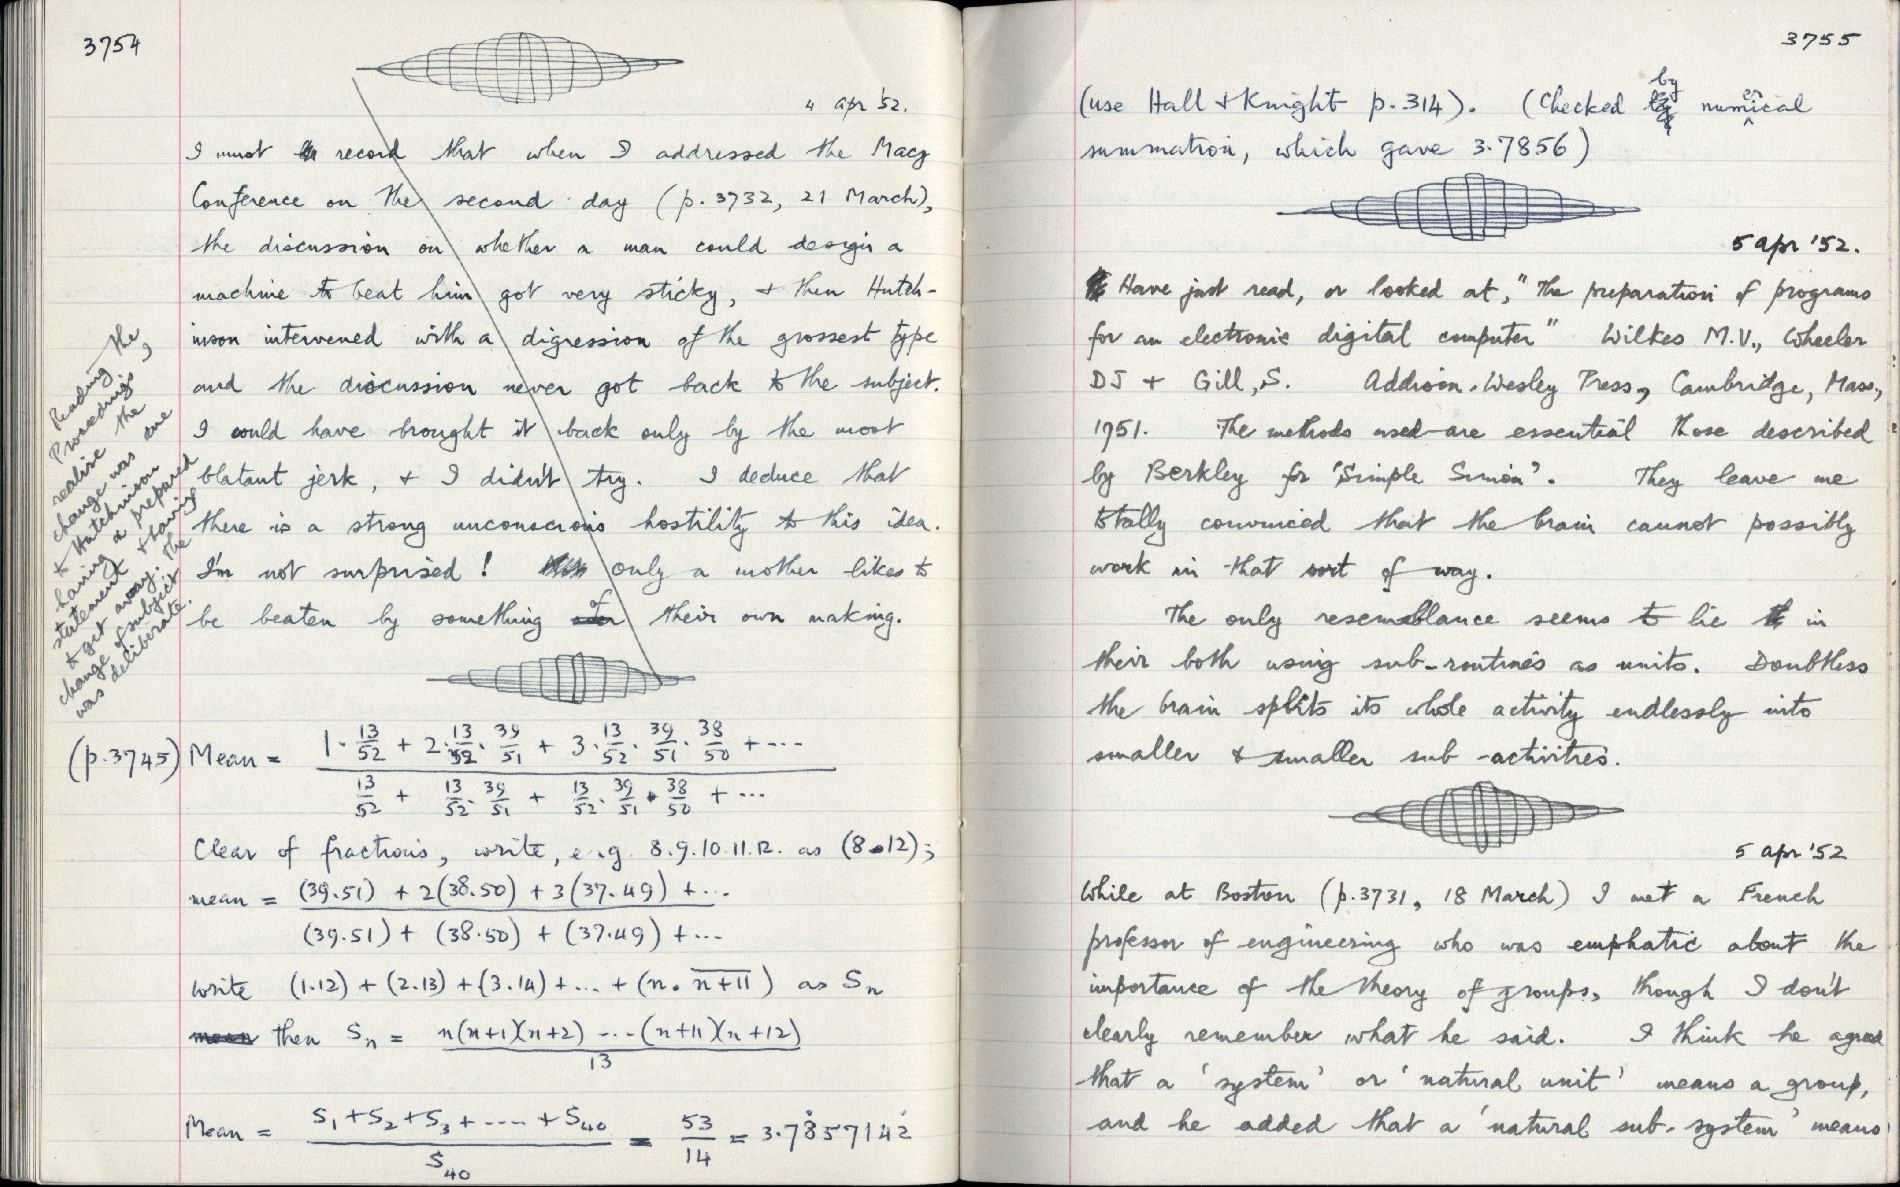 3754
4 Apr '52.
I must record that when I addressed the Macy
Conference on the second day (p. 3732, 21 March),
the discussion on whether a man could design a
machine to beat him got very sticky, & then Hutch-
inson intervened with a digression of the grossest type
and the discussion never got back to the subject.
I could have brought it back only by the most
blatant jerk, & I didn't try. I deduce that
there is a strong unconscious hostility to this idea.
I'm not surprised! only a mother likes to
be beaten by something of their own making.
Reading the
Proceedings, I
realise the
change was due
to Hutchinson
having a prepared
statement & having
to get away. The
change of subject
was deliberate.
(p.3745) Mean = 1·13/52 + 2·13/52·39/51 + 3·13/52·39/51·38/50 + ···
13/52 + 13/52·39/51 + 13/52·39/51·38/50 + ···
Clear of fractions, write, e.g. 8.9.10.11.12. as (8·12);
mean = (39.51) + 2(38.50) + 3(37.49) + ...
(39.51) + (38.50) + (37.49) + ...
write (1.12) + (2.13) + (3.14) + ... + (n. n+11) as Sn
mean then Sn = n(n+1)(n+2) --- (n+11)(n+12)
13
Mean = S1 + S2 + S3 + ---- + S40 = 53/14 = 3.7̇857142̇
S40
3755
(use Hall & Knight p. 314). (Checked by numerical
summation, which gave 3.7856)
5 Apr '52.
Have just read, or looked at, "The preparation of programs
for an electronic digital computer" Wilkes M.V., Wheeler
DJ & Gill, S. Addison-Wesley Press, Cambridge, Mass,
1951. The methods used are essential those described
by Berkley for 'Simple Simon'. They leave me
totally convinced that the brain cannot possibly
work in that sort of way.
The only resemblance seems to lie in
their both using sub-routines as units. Doubtless
the brain splits its whole activity endlessly into
smaller & smaller sub-activities.
5 Apr '52
While at Boston (p.3731, 18 March) I met a French
professor of engineering who was emphatic about the
importance of the theory of groups, though I don't
clearly remember what he said. I think he agreed
that a 'system' or 'natural unit' means a group,
and he added that a 'natural sub-system' means